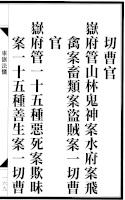 切曹官
嶽府管山林鬼神案水府案飛
禽案畜類案盜賊案一切曹
官
嶽府管一十五種惡死案欺昧
案一十五種善生案一切曹